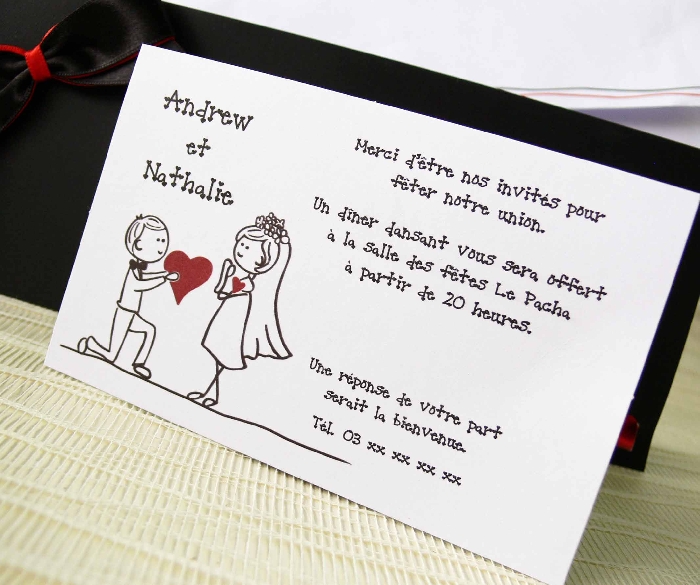 Andrew
et
Nathalie
Merci d'être nos invités pour
fêter notre union.
Un dîner dansant vous sera offert
à la salle des fêtes Le Pacha
à partir de 20 heures.
Une réponse de votre part
serait la bienvenue.
Tél. 03 xx xx xx xx